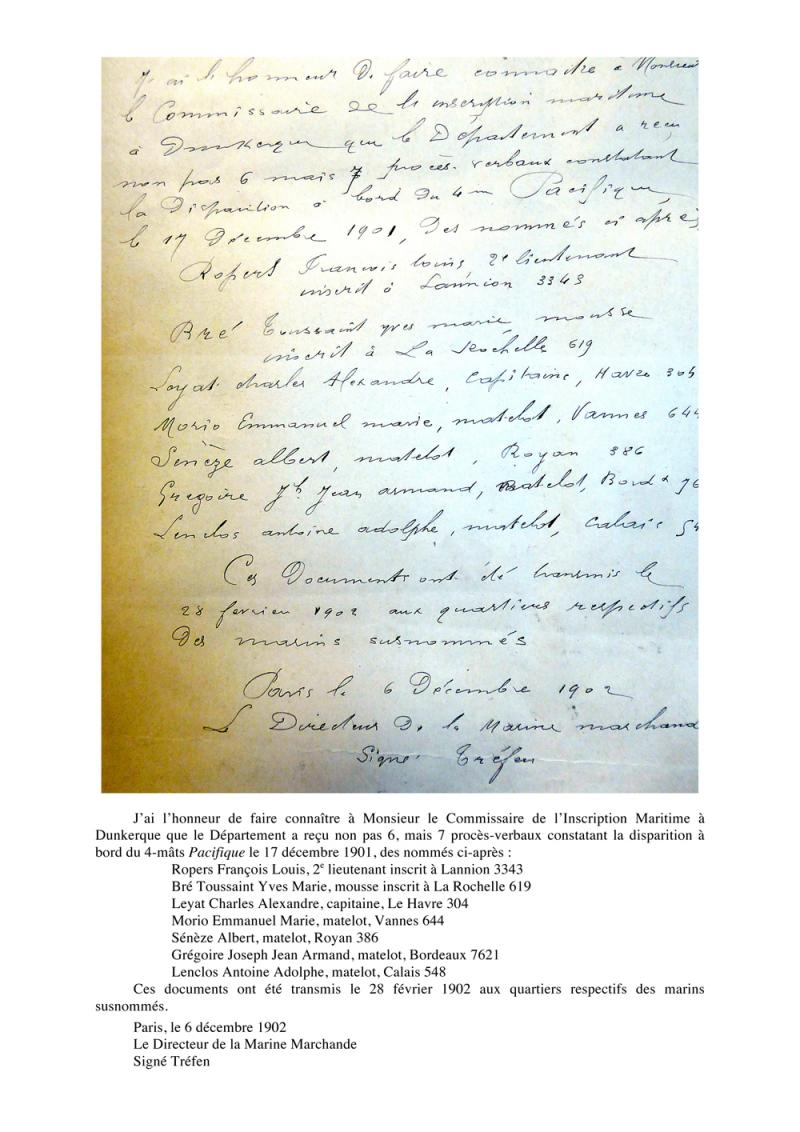 J'ai l'honneur De faire connaitre a Monsieur
le Commissaire de le inscription maritime
à Dunkerque que le Département a reçu
non pas 6 mais 7 procès-verbaux constatant
la Disparition à bord Du 4 m Pacifique
le 17 Décembre 1901, Des nommés ci après
Ropert Francois louis 2e lieutenant
inscrit à Lannion 3343
Bré Toussaint yves marie mousse
inscrit à La Rochelle 619
Loyat charles Alexandre, Capitaine, Havre 304
Morio Emmanuel marie, matelot, Vannes 644
Senèze albert, matelot, Royan 386
Gregoire Jh Jean armand, matelot, Bordx 76
Lenclos antoine adolphe, matelot, Calais 54
Ces Documents ont été transmis le
28 fevrier 1902 aux quartiers respectifs
Des marins susnommés
Paris le 6 Décembre 1902
Le Directeur De la Marine marchand
Signé Tréfen
J'ai l'honneur de faire connaître à Monsieur le Commissaire de l'Inscription Maritime à
Dunkerque que le Département a reçu non pas 6, mais 7 procès-verbaux constatant la disparition à
bord du 4-mâts Pacifique le 17 décembre 1901, des nommés ci-après :
Ropers François Louis, 2e lieutenant inscrit à Lannion 3343
Bré Toussaint Yves Marie, mousse inscrit à La Rochelle 619
Leyat Charles Alexandre, capitaine, Le Havre 304
Morio Emmanuel Marie, matelot, Vannes 644
Sénèze Albert, matelot, Royan 386
Grégoire Joseph Jean Armand, matelot, Bordeaux 7621
Lenclos Antoine Adolphe, matelot, Calais 548
Ces documents ont été transmis le 28 février 1902 aux quartiers respectifs des marins
susnommés.
Paris, le 6 décembre 1902
Le Directeur de la Marine Marchande
Signé Tréfen